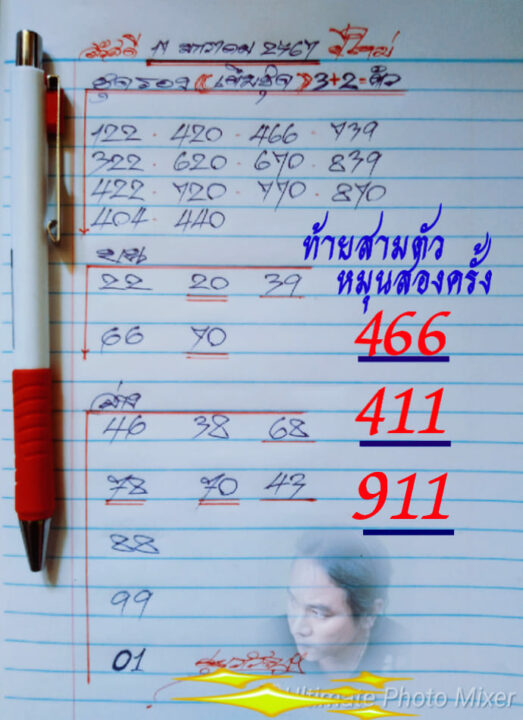 สวัสดี 17 มกราคม 2467 ปีใหม่
3+2= ตัว
122 . 420 . 466 . 739
322 . 620 . 670 . 839
422 . 720 . 770 . 870
404 . 440
บน
22 20 39
66 70
ท้ายสามตัว
หมุนสองครั้ง
466
411
911
ล่าง
46 38 68
78 70 43
88
99
01
Ultimate Photo Mixer